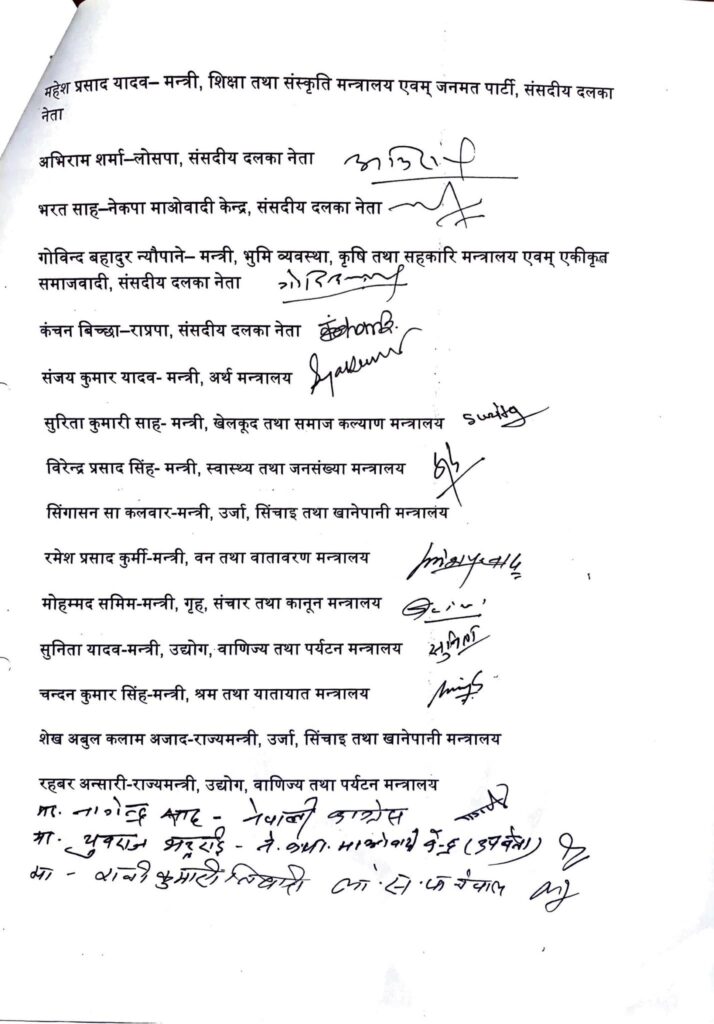 महेश प्रसाद यादव– मन्त्री, शिक्षा तथा संस्कृति मन्त्रालय एवम् जनमत पार्टी, संसदीय दलका
नेता
अभिराम शर्मा–लोसपा, संसदीय दलका नेता
भरत साह–नेकपा माओवादी केन्द्र, संसदीय दलका नेता
गोविन्द बहादुर न्यौपाने– मन्त्री, भुमि व्यवस्था, कृषि तथा सहकारि मन्त्रालय एवम् एकीकृत
समाजवादी, संसदीय दलका नेता
कंचन बिच्छा–राप्रपा, संसदीय दलका नेता
संजय कुमार यादव- मन्त्री, अर्थ मन्त्रालय
सुरिता कुमारी साह- मन्त्री, खेलकूद तथा समाज कल्याण मन्त्रालय
विरेन्द्र प्रसाद सिंह- मन्त्री, स्वास्थ्य तथा जनसंख्या मन्त्रालय
सिंगासन सा कलवार-मन्त्री, उर्जा, सिंचाइ तथा खानेपानी मन्त्रालय
रमेश प्रसाद कुर्मी-मन्त्री, वन तथा वातावरण मन्त्रालय
मोहम्मद समिम-मन्त्री, गृह, संचार तथा कानून मन्त्रालय
सुनिता यादव-मन्त्री, उद्योग, वाणिज्य तथा पर्यटन मन्त्रालय सुनिता
चन्दन कुमार सिंह-मन्त्री, श्रम तथा यातायात मन्त्रालय
शेख अबुल कलाम अजाद-राज्यमन्त्री, उर्जा, सिंचाइ तथा खानेपानी मन्त्रालय
रहबर अन्सारी-राज्यमन्त्री, उद्योग, वाणिज्य तथा पर्यटन मन्त्रालय
मा. नागेन्द्र साह - नेपाली काग्रेस
मा. युवराज भट्टराई - ने.क.पा. माओवादी केन्द्र (उपनेता)
मा - रानी कुमारी तिवारी